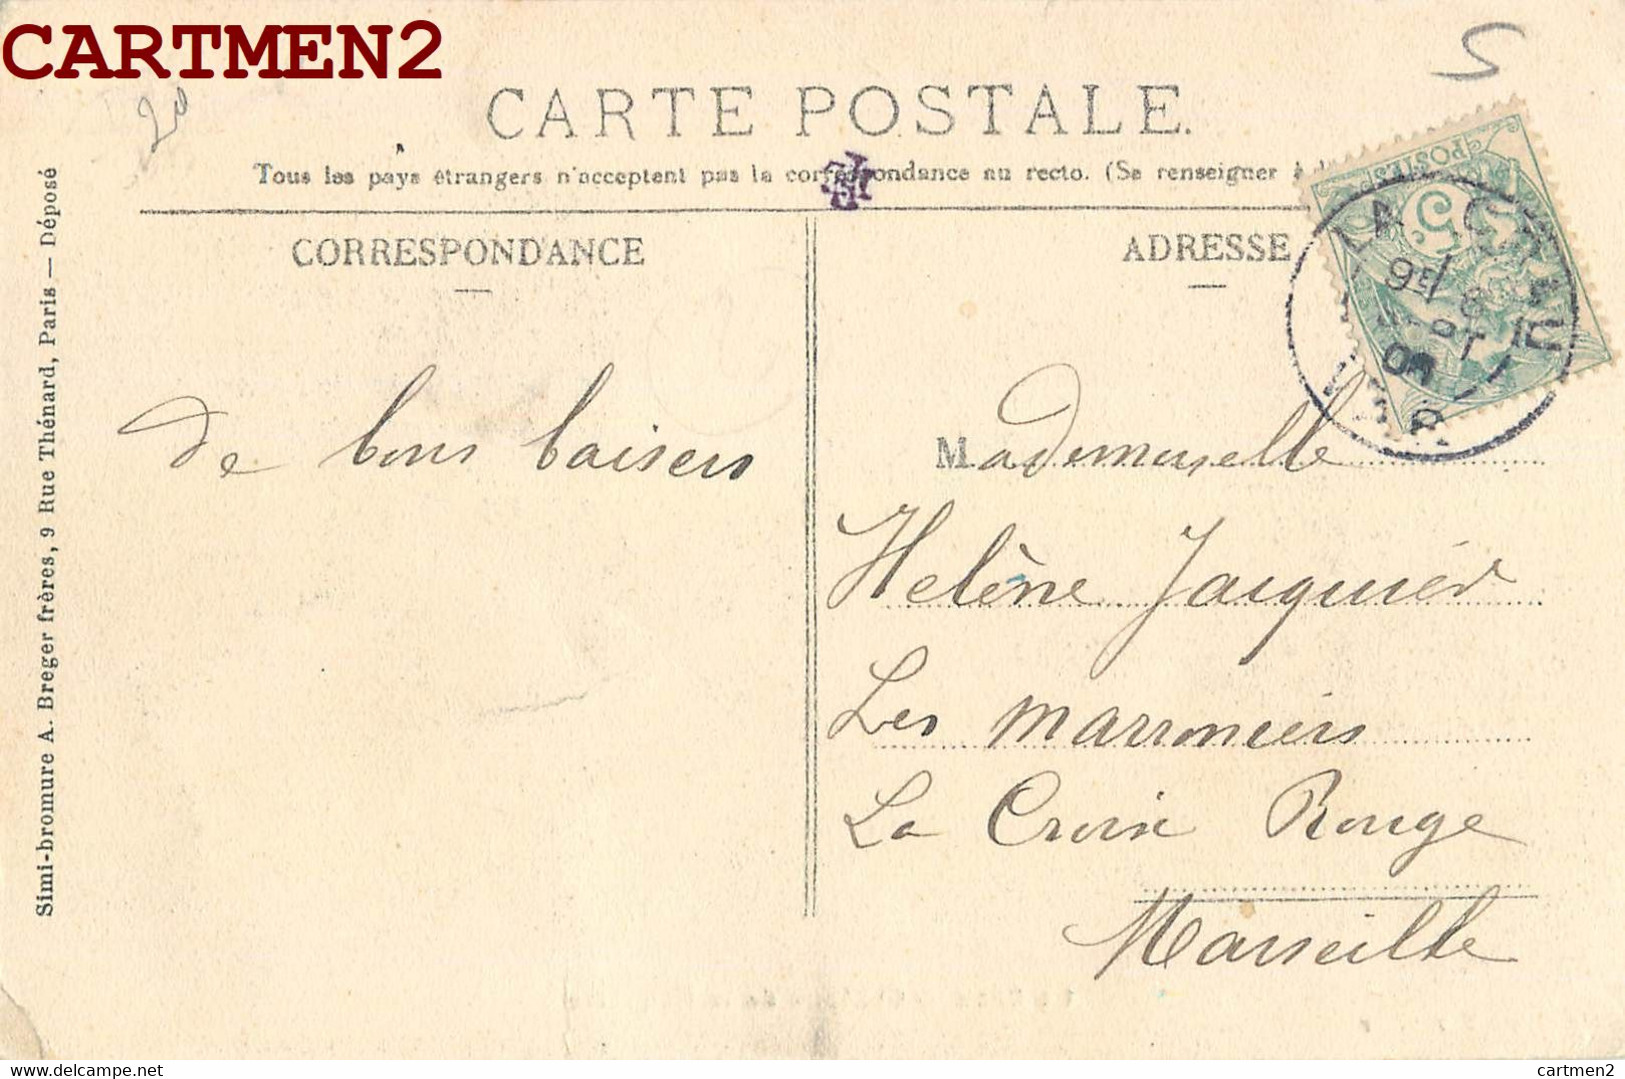 CARTMEN2
20
5
CARTE POSTALE.
Tous les pays étrangers n'acceptent pas la correspondance au recto. (Se renseigner à
CORRESPONDANCE
ADRESSE
POSTES
5
LA
VAR
8
SEPT
de bons baisers
Mademoiselle
Helène Jacquier
Les marroniers
La Croix Rouge
Marseille
Simi-bromure A. Breger frères, 9 Rue Thénard, Paris — Déposé
delcampe.net
cartmen2